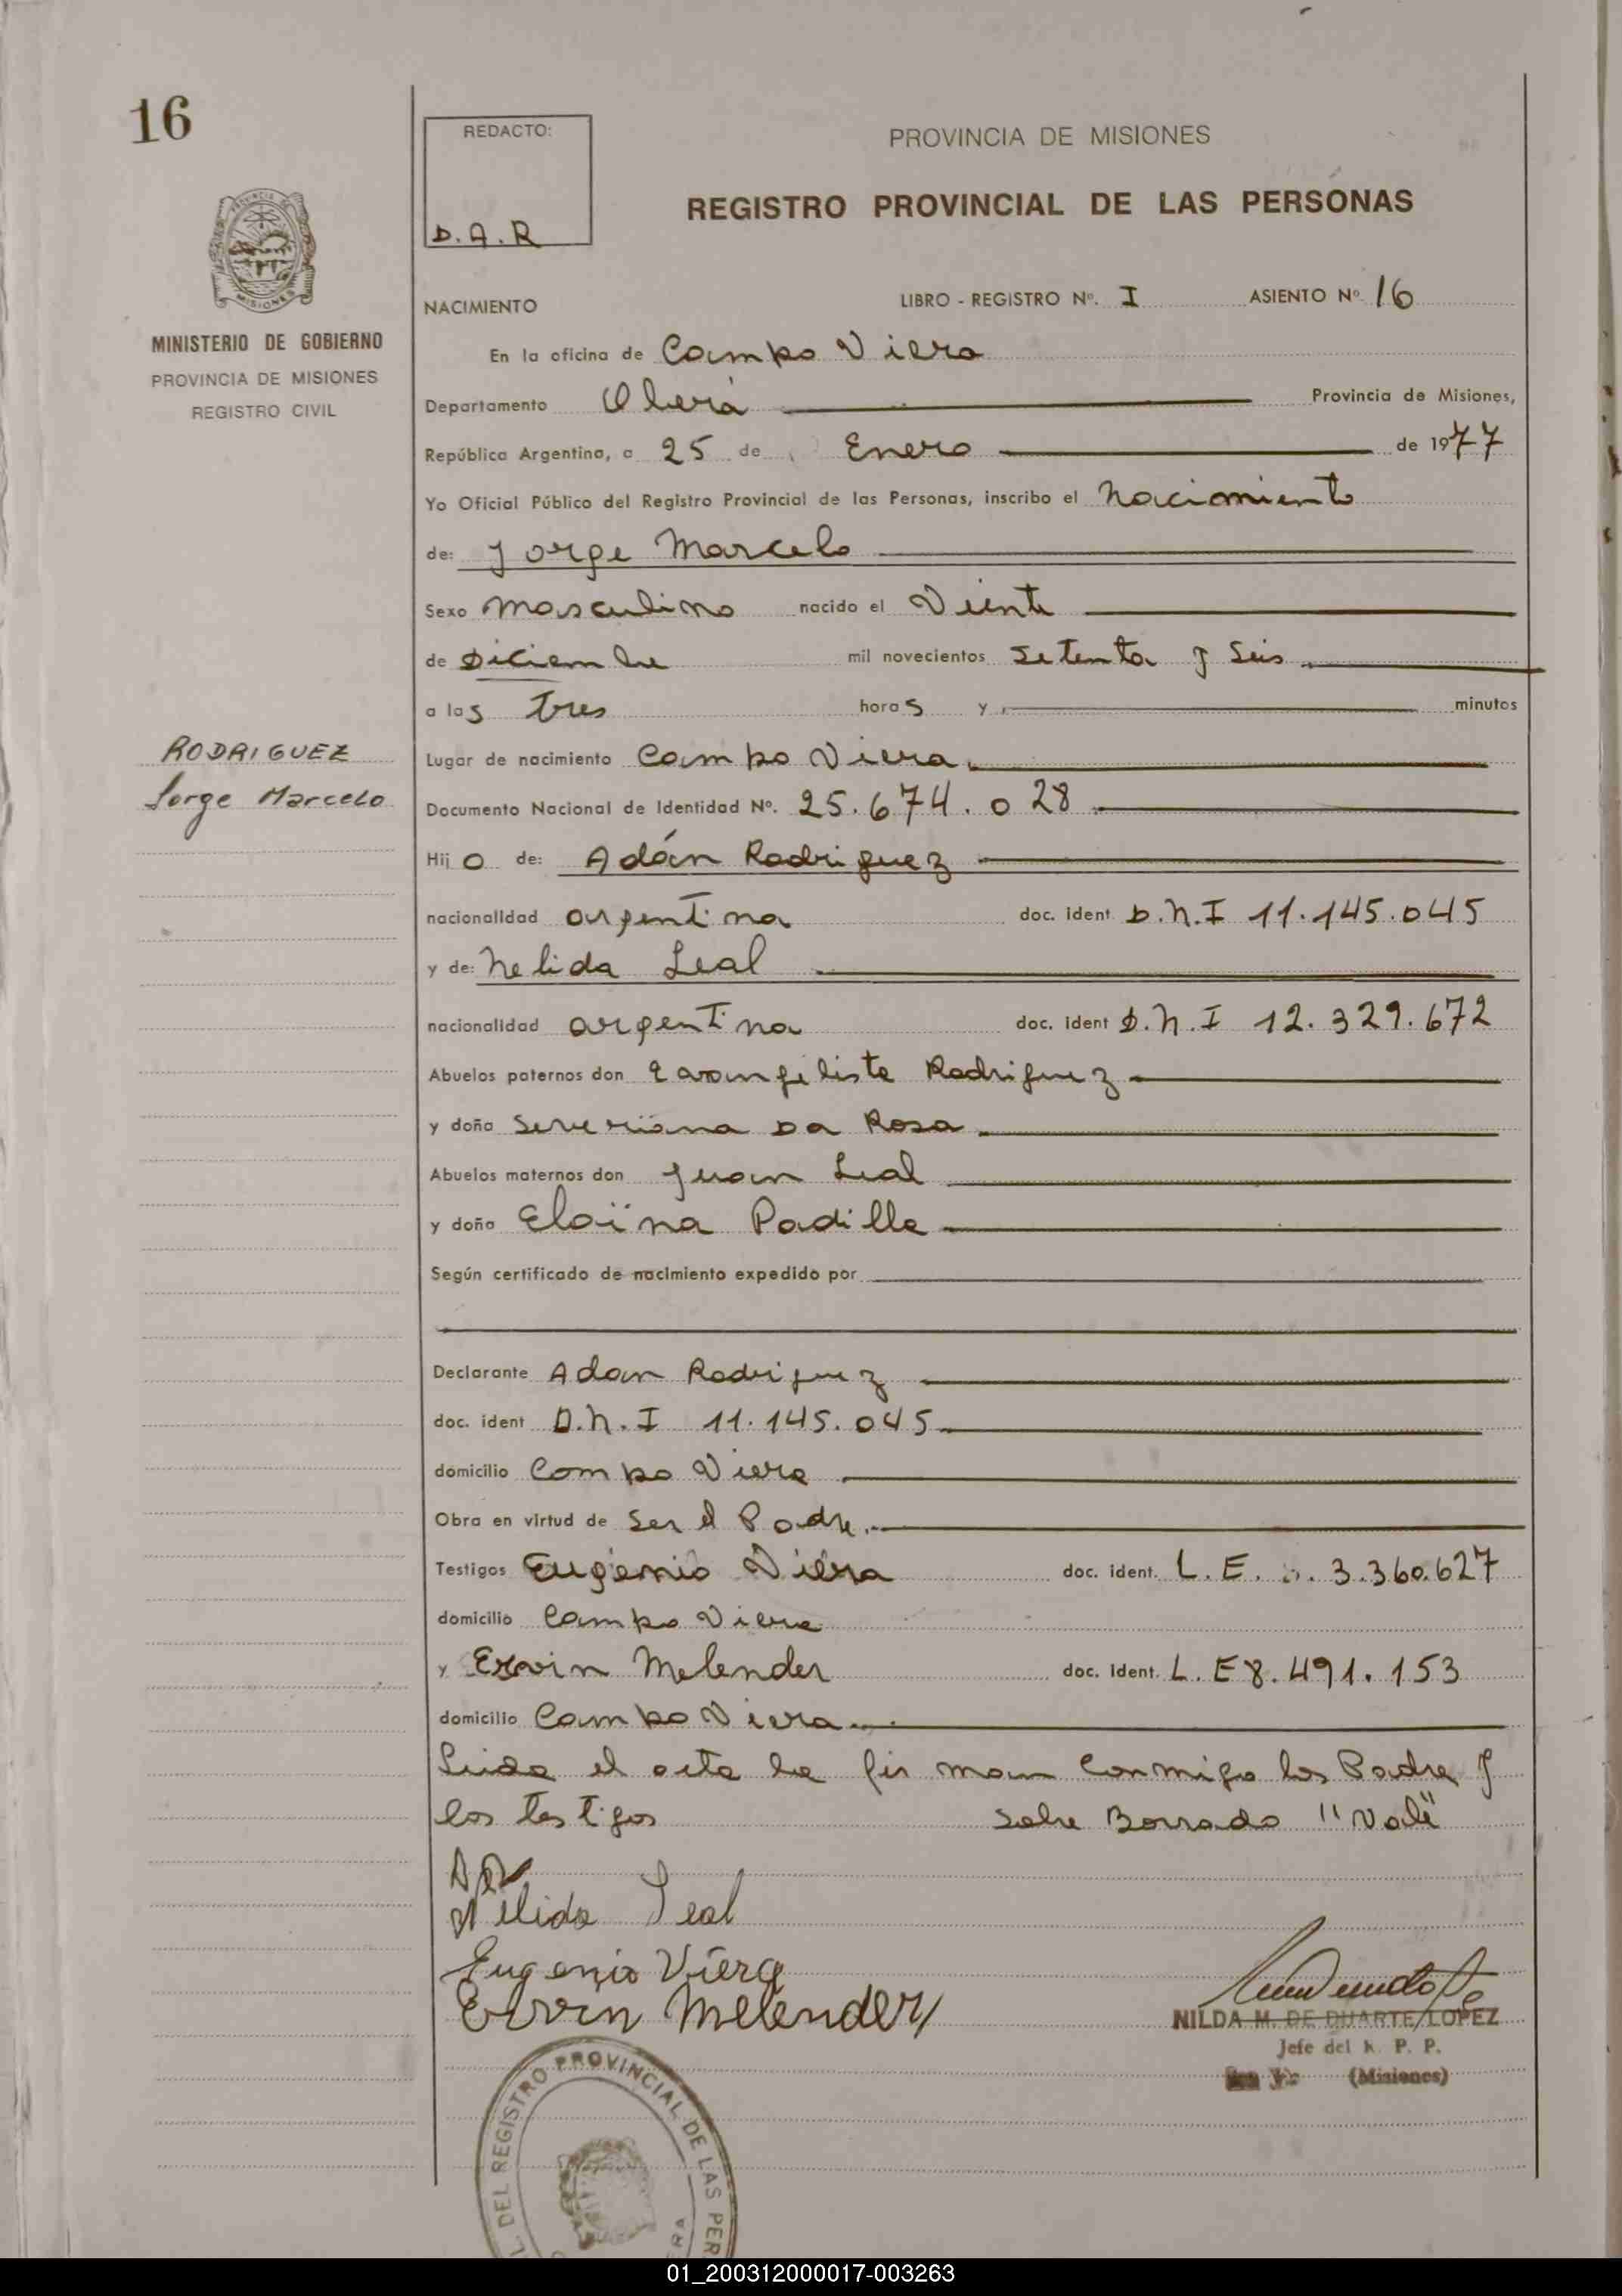 16
REDACTO:
D.A.R
PROVINCIA DE MISIONES
REGISTRO PROVINCIAL DE LAS PERSONAS
MINISTERIO DE GOBIERNO
PROVINCIA DE MISIONES
REGISTRO CIVIL
NACIMIENTO LIBRO - REGISTRO Nº. I ASIENTO Nº 16
En la oficina de Campo Viera
Departamento Oberá Provincia de Misiones,
República Argentina, a 25 de Enero de 1977
Yo Oficial Público del Registro Provincial de las Personas, inscribo el Nacimiento
de: Jorge Marcelo
Sexo Masculino nacido el Veinte
de Diciembre mil novecientos Setenta y Seis
a las tres horas y minutos
RODRIGUEZ
Jorge Marcelo
Lugar de nacimiento Campo Viera.
Documento Nacional de Identidad Nº. 25.674.028
Hijo de: Adán Rodriguez
nacionalidad argentina doc. ident D.N.I 11.145.045
y de: Nelida Leal
nacionalidad argentina doc. ident D.N.I 12.329.672
Abuelos paternos don Evangeliste Rodriguez
y doña Severiana Da Rosa
Abuelos maternos don Juan Leal
y doña Eloina Padilla
Según certificado de nacimiento expedido por
Declarante Adan Rodriguez
doc. ident D.N.I 11.145.045
domicilio Campo Viera
Obra en virtud de Ser el Padre.
Testigos Eugenio Viera doc. ident. L.E. 3.360.627
domicilio Campo Viera
y Ervin Melender doc. ident. L.E 8.491.153
domicilio Campo Viera
Leida el acta la firman conmigo los Padres y
los testigos Sobre Borrado "Vale"
Nélida Leal
Eugenio Viera
Ervin Melender
NILDA M. DE DUARTE LOPEZ
Jefe del R. P. P.
(Misiones)
DEL REGISTRO PROVINCIAL DE LAS PER
01_200312000017-003263